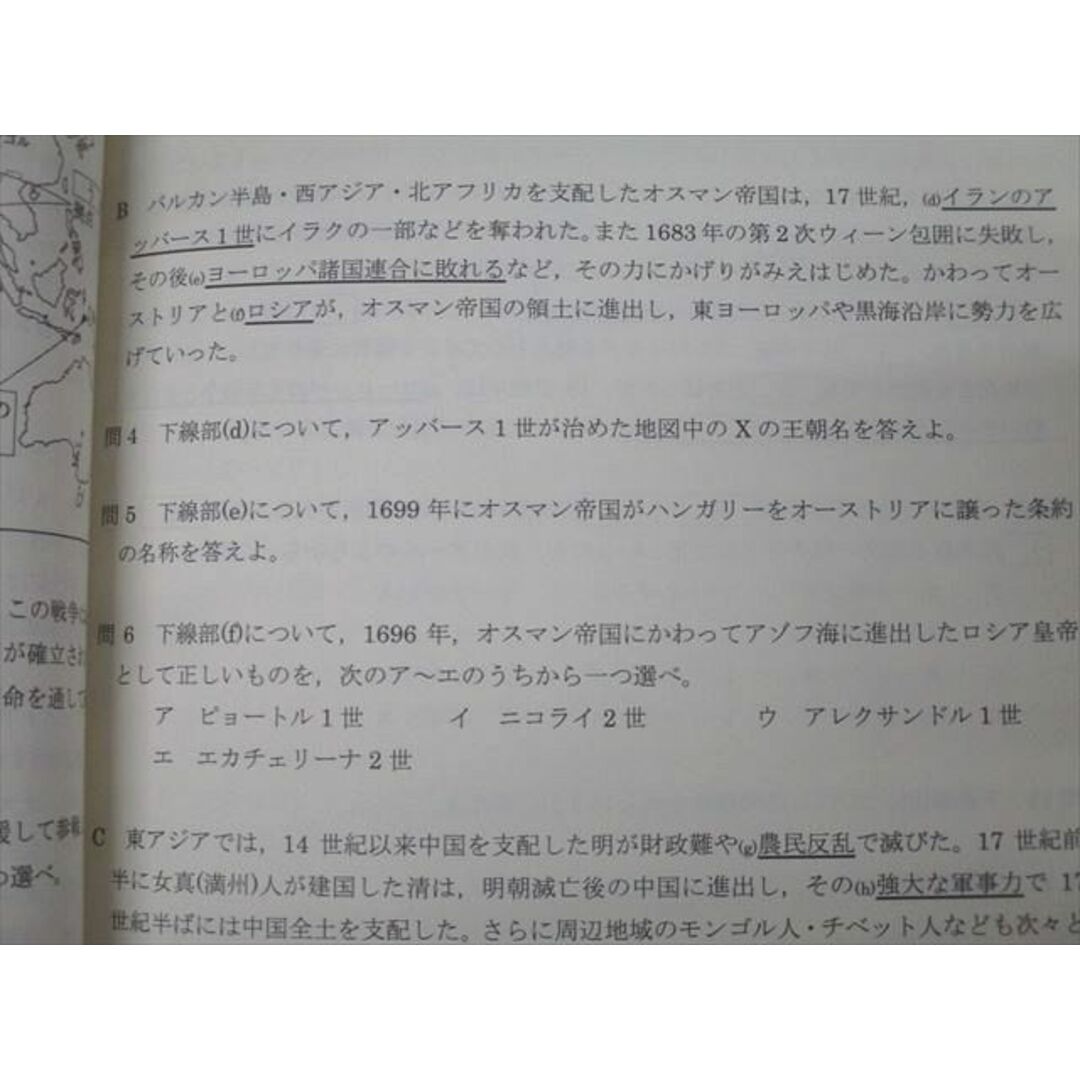 B バルカン半島・西アジア・北アフリカを支配したオスマン帝国は，17世紀，(d)イランのア
ッバース1世にイラクの一部などを奪われた。また1683年の第2次ウィーン包囲に失敗し，
その後(e)ヨーロッパ諸国連合に敗れるなど，その力にかげりがみえはじめた。かわってオー
ストリアと(f)ロシアが，オスマン帝国の領土に進出し，東ヨーロッパや黒海沿岸に勢力を広
げていった。
問4 下線部(d)について，アッバース1世が治めた地図中のXの王朝名を答えよ。
問5 下線部(e)について，1699年にオスマン帝国がハンガリーをオーストリアに譲った条約
の名称を答えよ。
この戦争
問6 下線部(f)について，1696年，オスマン帝国にかわってアゾフ海に進出したロシア皇帝
が確立され
として正しいものを，次のア～エのうちから一つ選べ。
命を通して
ア ピョートル1世 イ ニコライ2世 ウ アレクサンドル1世
エ エカチェリーナ2世
援して参
C 東アジアでは，14世紀以来中国を支配した明が財政難や(g)農民反乱で滅びた。17世紀前
つ選べ。
半に女真(満州)人が建国した清は，明朝滅亡後の中国に進出し，その(h)強大な軍事力で17
世紀半ばには中国全土を支配した。さらに周辺地域のモンゴル人・チベット人なども次々と